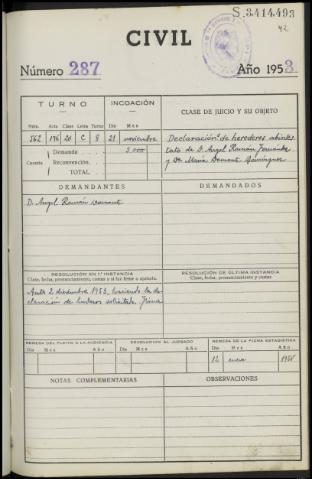 S.3414.493
42
CIVIL
Número 287
Año 1953.
TURNO
INCOACIÓN
CLASE DE JUICIO Y SU OBJETO
Núm. Acta Clase Letra Turno Día Mes
562 196 20 C 8 21 noviembre
Declaración de herederos abintes
Demanda 5.000
tato de D. Angel Ramón Fernández
Cuantía Reconvención.
y Dª María Domínguez
TOTAL.
DEMANDANTES
DEMANDADOS
D. Angel Ramón
RESOLUCIÓN EN 1.ª INSTANCIA
Clase, fecha, pronunciamiento, costas y si fué firme o apelada.
RESOLUCIÓN DE ÚLTIMA INSTANCIA
Clase, fecha, pronunciamiento, costas.
Auto 2 diciembre 1953, haciendo la de-
claración de herederos solicitada. Firme
REMESA DEL PLEITO A LA AUDIENCIA
DEVOLUCIÓN AL JUZGADO
REMESA DE LA FICHA ESTADÍSTICA
Día Mes Año
Día Mes Año
Día Mes Año
12 enero 1954
NOTAS COMPLEMENTARIAS
OBSERVACIONES